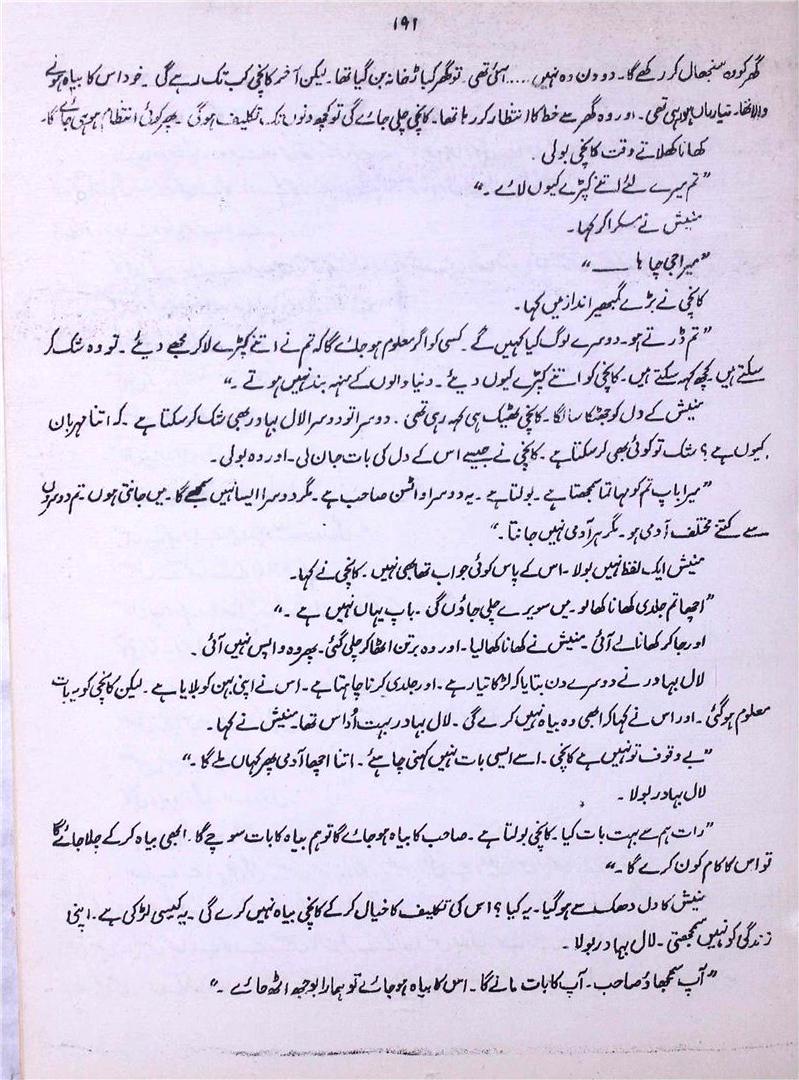 ۱۹۱
گھر کون سنبھال کر رکھے گا۔ دو دن وہ نہیں .... آئی تھی۔ تو گھر کباڑ خانہ بن گیا تھا۔ لیکن آخر کانچی کب تک رہے گی۔ خود اس کا بیاہ ہونے
والا تھا۔ تیاریاں ہو رہی تھی۔ اور وہ گھر سے خط کا انتظار کر رہا تھا۔ کانچی چلی جائے گی تو کچھ دنوں تک تکلیف ہوگی۔ پھر کوئی انتظام ہو ہی جائے گا۔
کھانا کھلاتے وقت کانچی بولی۔
”تم میرے لئے اتنے کپڑے کیوں لائے۔“
منیش نے مسکرا کر کہا۔
”میرا جی چاہا ——“
کانچی نے بڑے گمبھیر انداز میں کہا۔
”تم ڈرتے ہو۔ دوسرے لوگ کیا کہیں گے۔ کسی کو اگر معلوم ہو جائے گا کہ تم نے اتنے کپڑے لا کر مجھے دیئے۔ تو وہ شک کر
سکتے ہیں۔ کچھ کہہ سکتے ہیں۔ کانچی کو اتنے کپڑے کیوں دیئے۔ دنیا والوں کے منہہ بند نہیں ہوتے۔“
منیش کے دل کو جھٹکا سا لگا۔ کانچی ٹھیک ہی کہہ رہی تھی۔ دوسرا تو دوسرا لال بہادر بھی شک کر سکتا ہے۔ کہ اتنا مہربان
کیوں ہے؟ شک تو کوئی بھی کر سکتا ہے۔ کانچی نے جیسے اس کے دل کی بات جان لی۔ اور وہ بولی۔
”میرا باپ تم کو مہاتما سمجھتا ہے۔ بولتا ہے۔ یہ دوسرا واٹسن صاحب ہے۔ مگر دوسرا ایسا نہیں سمجھے گا۔ میں جانتی ہوں۔ تم دوسروں
سے کتنے مختلف آدمی ہو۔ مگر ہر آدمی نہیں جانتا۔“
منیش ایک لفظ نہیں بولا۔ اس کے پاس کوئی جواب تھا بھی نہیں۔ کانچی نے کہا۔
”اچھا تم جلدی کھانا کھا لو۔ میں سویرے چلی جاؤں گی۔ باپ یہاں نہیں ہے۔“
اور جا کر کھانا لے آئی۔ منیش نے کھانا کھا لیا۔ اور وہ برتن اٹھا کر چلی گئی۔ پھر وہ واپس نہیں آئی۔
لال بہادر نے دوسرے دن بتایا کہ لڑکا تیار ہے۔ اور جلدی کرنا چاہتا ہے۔ اس نے اپنی بہن کو بلایا ہے۔ لیکن کانچی کو یہ بات
معلوم ہو گئی۔ اور اس نے کہا کہ ابھی وہ بیاہ نہیں کرے گی۔ لال بہادر بہت اُداس تھا۔ منیش نے کہا۔
”بے وقوف تو نہیں ہے کانچی۔ اسے ایسی بات نہیں کہنی چاہئے۔ اتنا اچھا آدمی پھر کہاں ملے گا۔“
لال بہادر بولا۔
”رات ہم سے بہت بات کیا۔ کانچی بولتا ہے۔ صاحب کا بیاہ ہو جائے گا تو ہم بیاہ کا بات سوچے گا۔ ابھی بیاہ کر کے چلا جائے گا
تو اس کا کام کون کرے گا۔“
منیش کا دل دھک سے ہو گیا۔ یہ کیا؟ اس کی تکلیف کا خیال کر کے کانچی بیاہ نہیں کرے گی۔ یہ کیسی لڑکی ہے۔ اپنی
زندگی کو نہیں سمجھتی۔ لال بہادر بولا۔
”آپ سمجھاؤ صاحب۔ آپ کا بات مانے گا۔ اس کا بیاہ ہو جائے تو ہمارا بوجھ اٹھ جائے۔“